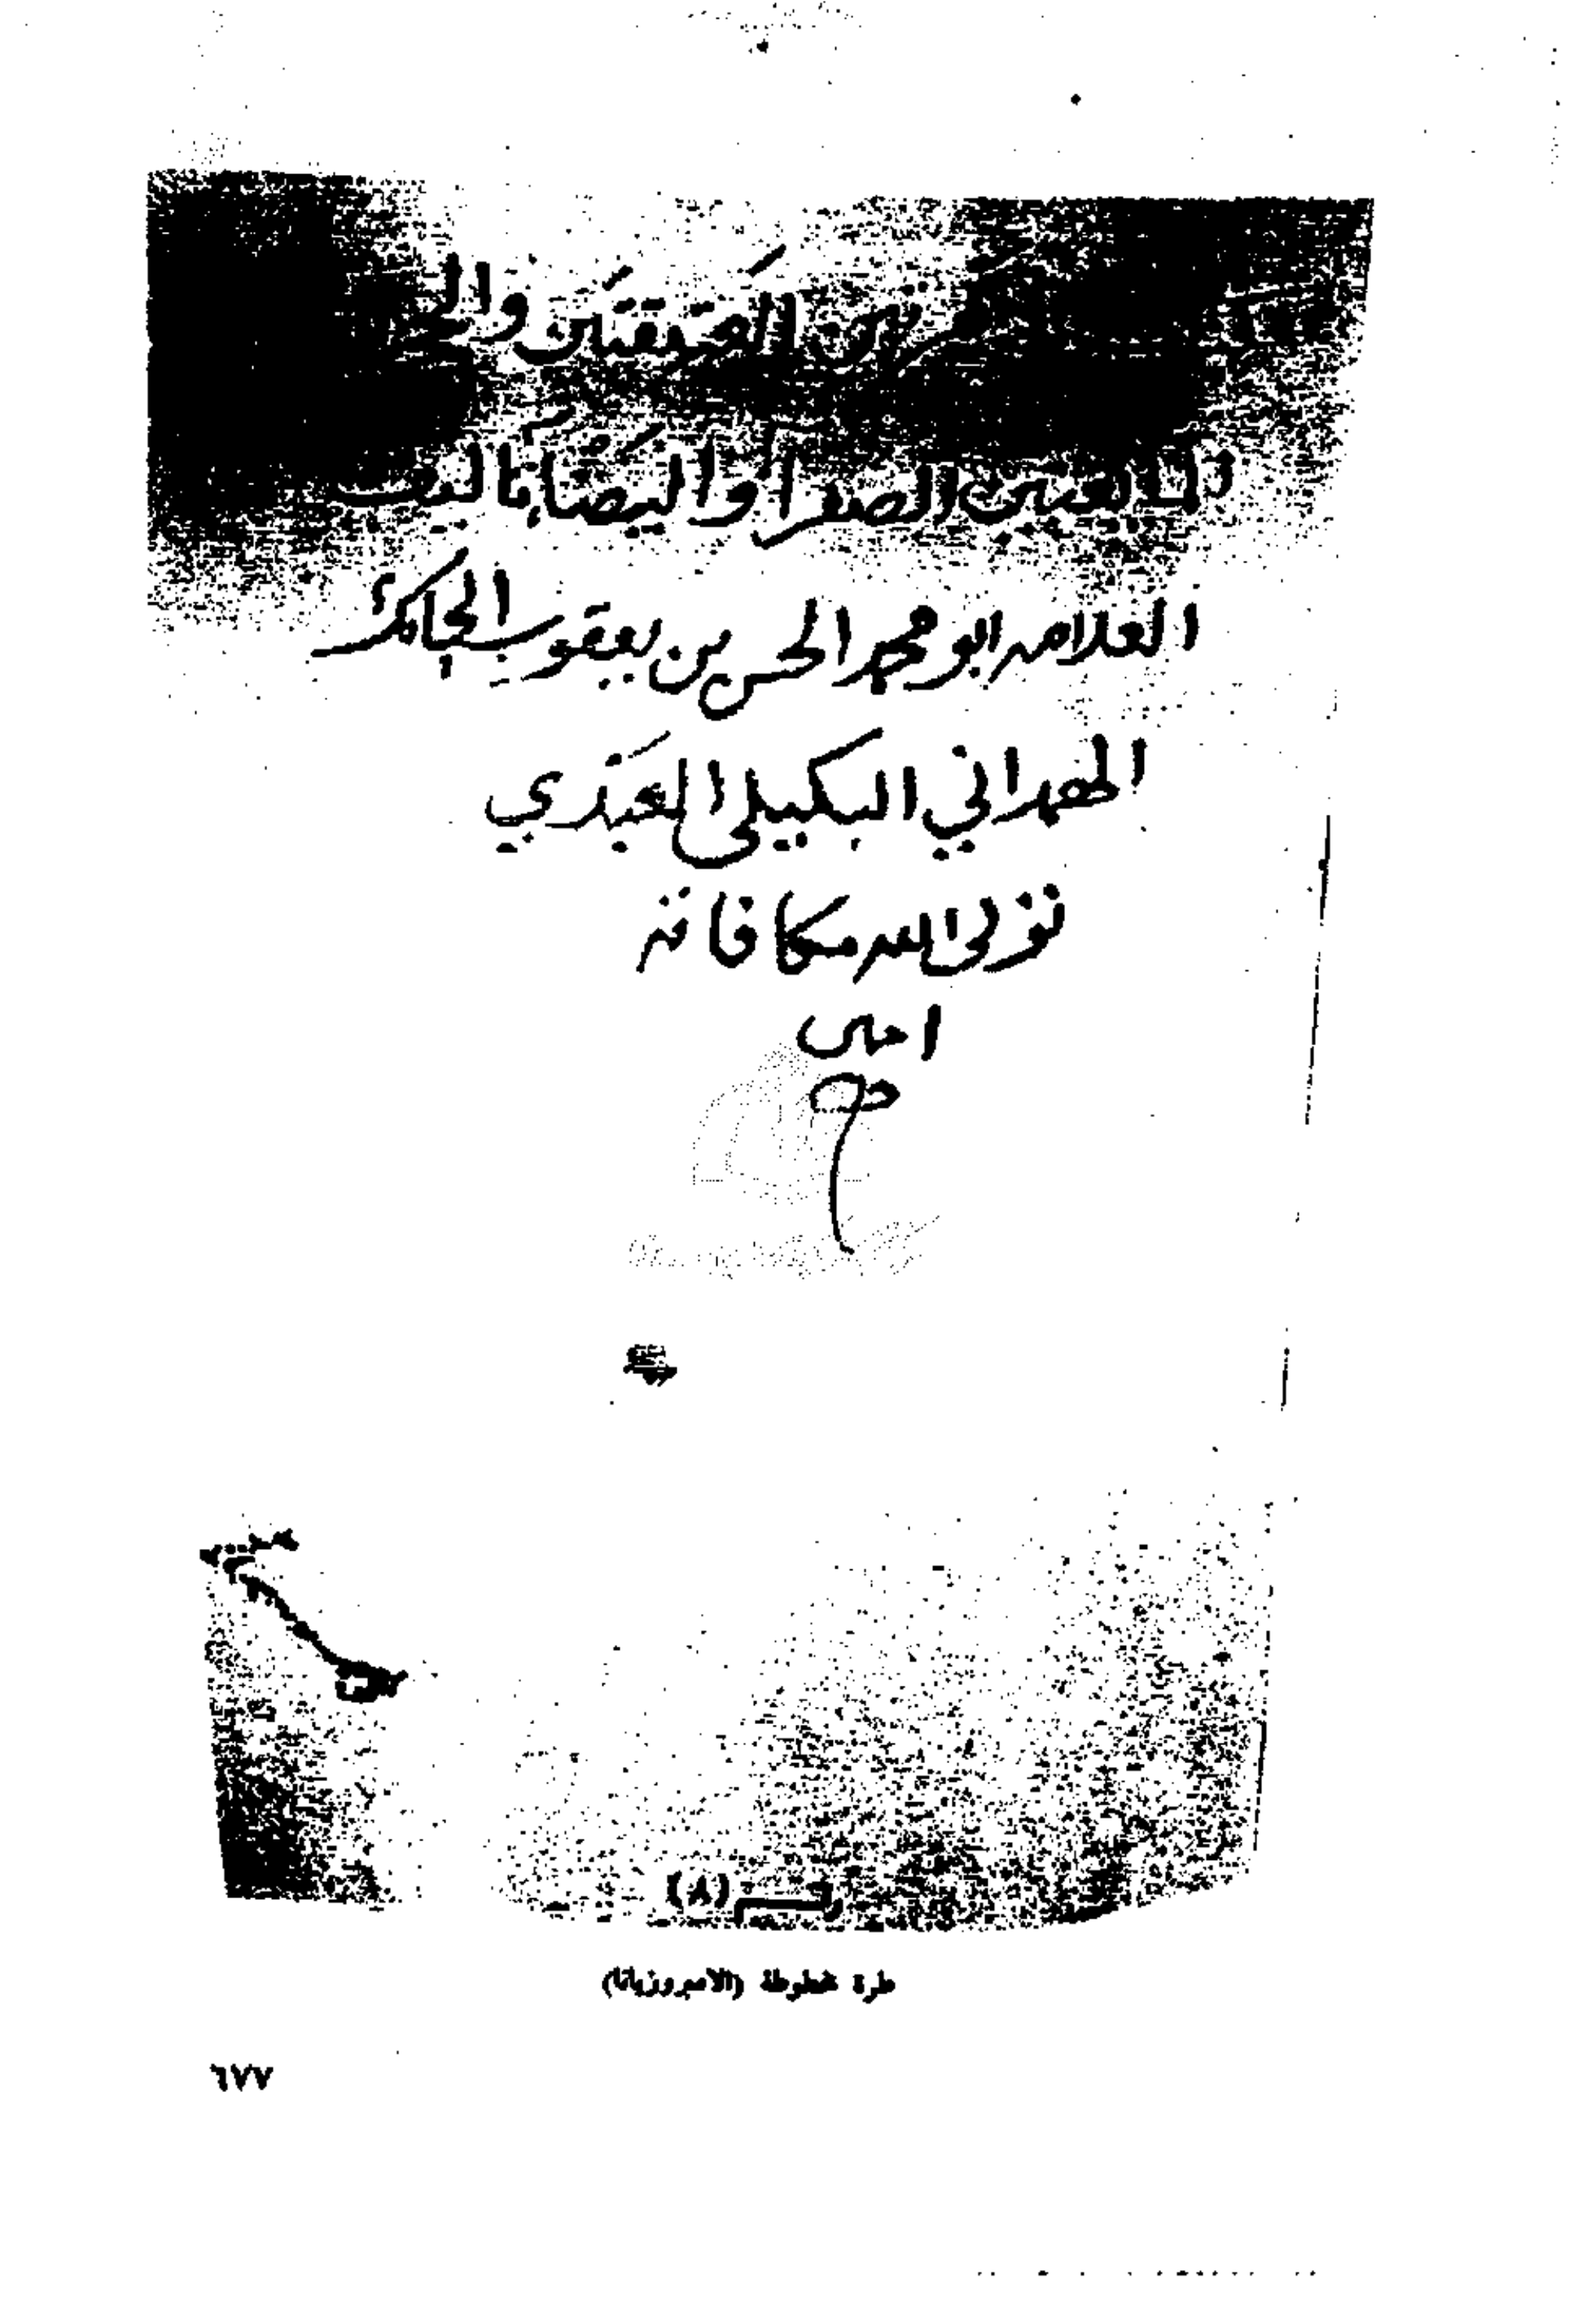 الجوهرتين العتيقتين وال
المايعتين الصفرا والبيضا تاليف
العلامه ابو محمد الحسن بن يعقوب الحايك
الهمداني البكيلي العبدي
تولى الله مكافاته
امين
(٨)
طرة مخطوطة (الامبروزيانا)
٦٧٧